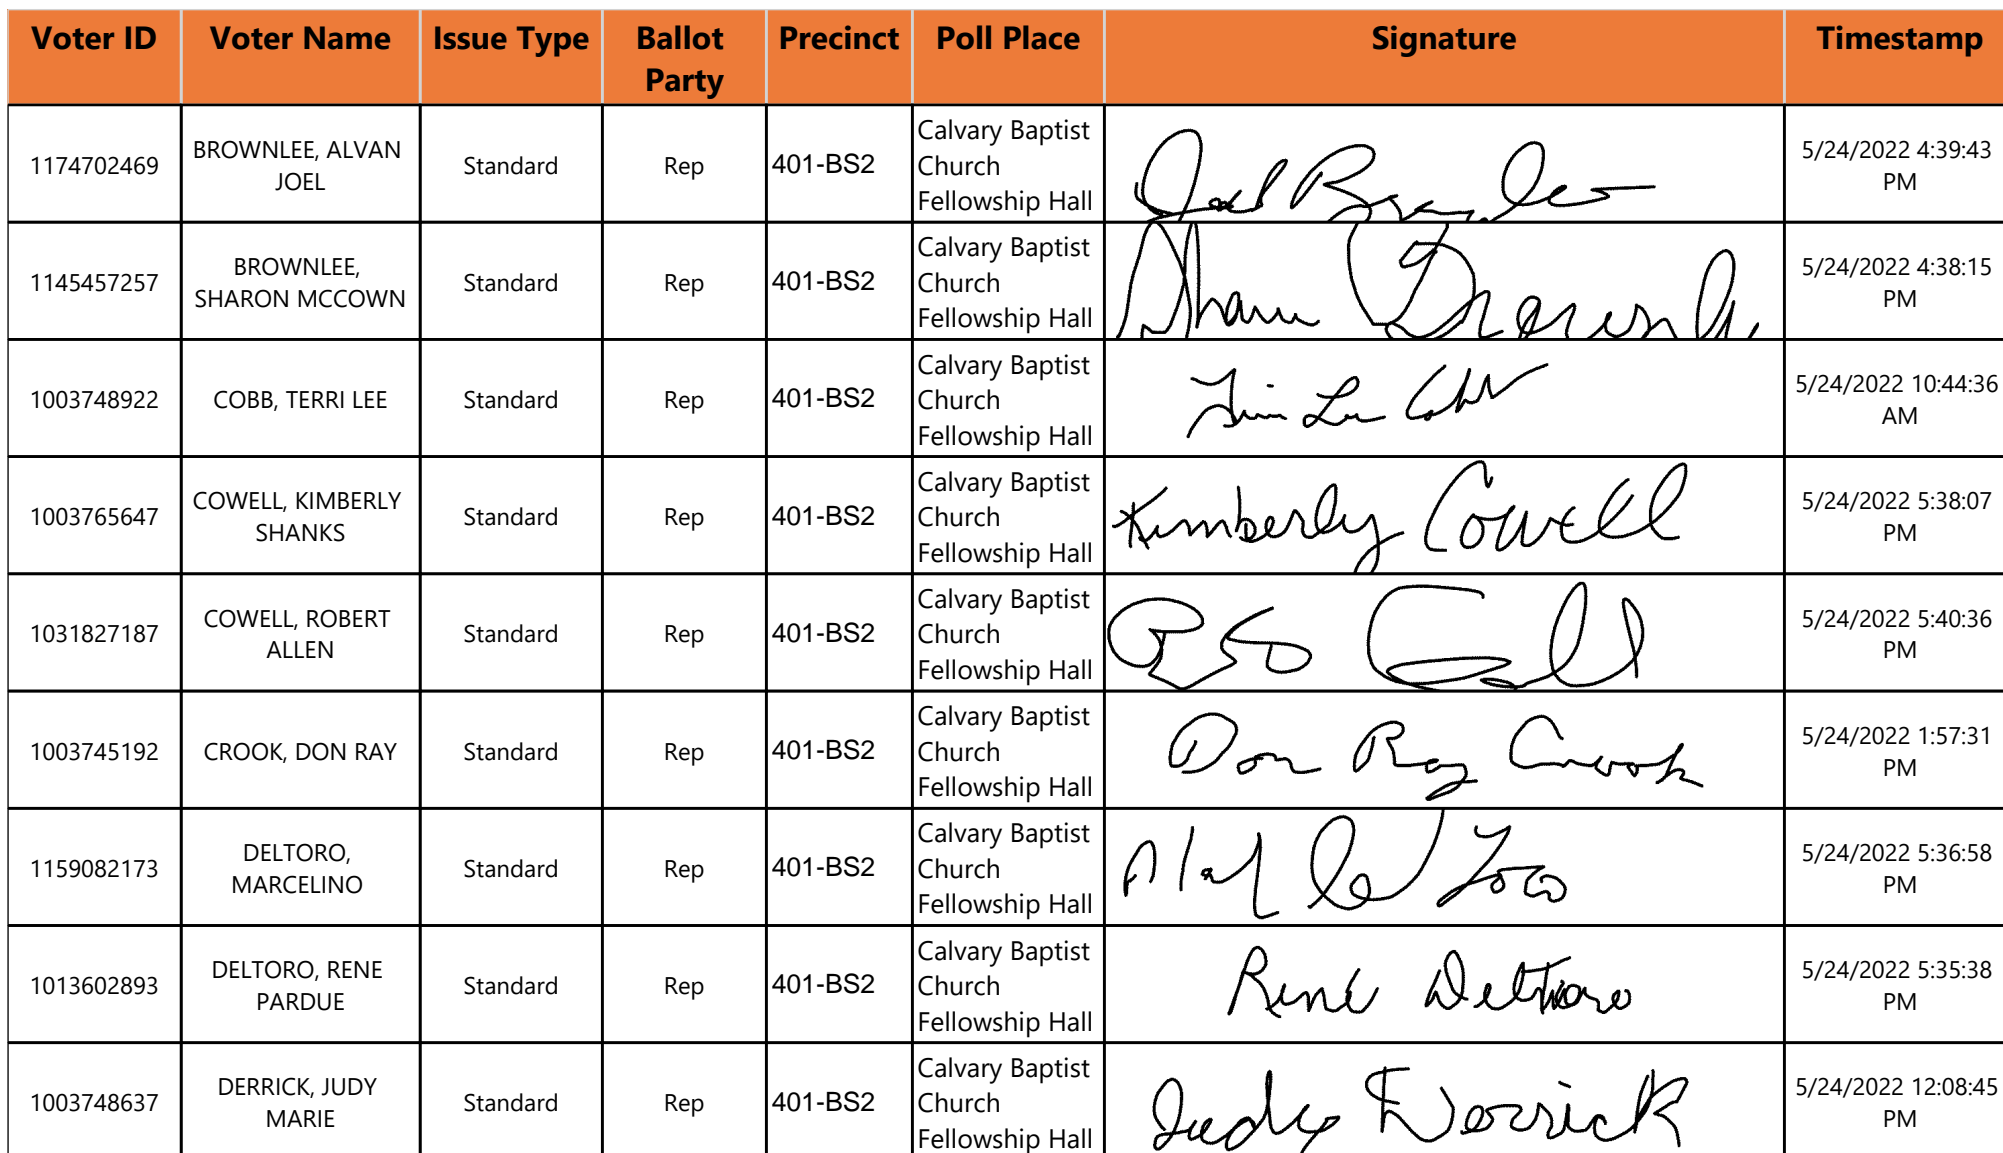 Voter ID Voter Name Issue Type Ballot Party Precinct Poll Place Signature Timestamp
1174702469 BROWNLEE, ALVAN JOEL Standard Rep 401-BS2 Calvary Baptist Church Fellowship Hall Joel Brownlee 5/24/2022 4:39:43 PM
1145457257 BROWNLEE, SHARON MCCOWN Standard Rep 401-BS2 Calvary Baptist Church Fellowship Hall Sharon Brownlee 5/24/2022 4:38:15 PM
1003748922 COBB, TERRI LEE Standard Rep 401-BS2 Calvary Baptist Church Fellowship Hall Terri Lee Cobb 5/24/2022 10:44:36 AM
1003765647 COWELL, KIMBERLY SHANKS Standard Rep 401-BS2 Calvary Baptist Church Fellowship Hall Kimberly Cowell 5/24/2022 5:38:07 PM
1031827187 COWELL, ROBERT ALLEN Standard Rep 401-BS2 Calvary Baptist Church Fellowship Hall 5/24/2022 5:40:36 PM
1003745192 CROOK, DON RAY Standard Rep 401-BS2 Calvary Baptist Church Fellowship Hall Don Ray Crook 5/24/2022 1:57:31 PM
1159082173 DELTORO, MARCELINO Standard Rep 401-BS2 Calvary Baptist Church Fellowship Hall 5/24/2022 5:36:58 PM
1013602893 DELTORO, RENE PARDUE Standard Rep 401-BS2 Calvary Baptist Church Fellowship Hall René Deltoro 5/24/2022 5:35:38 PM
1003748637 DERRICK, JUDY MARIE Standard Rep 401-BS2 Calvary Baptist Church Fellowship Hall Judy Derrick 5/24/2022 12:08:45 PM